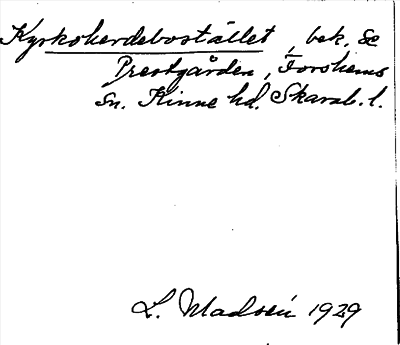 Kyrkoherdebostället, bek. se
Prestgården, Forshems
sn. Kinne hd. Skarab. l.
L. Madsén 1929